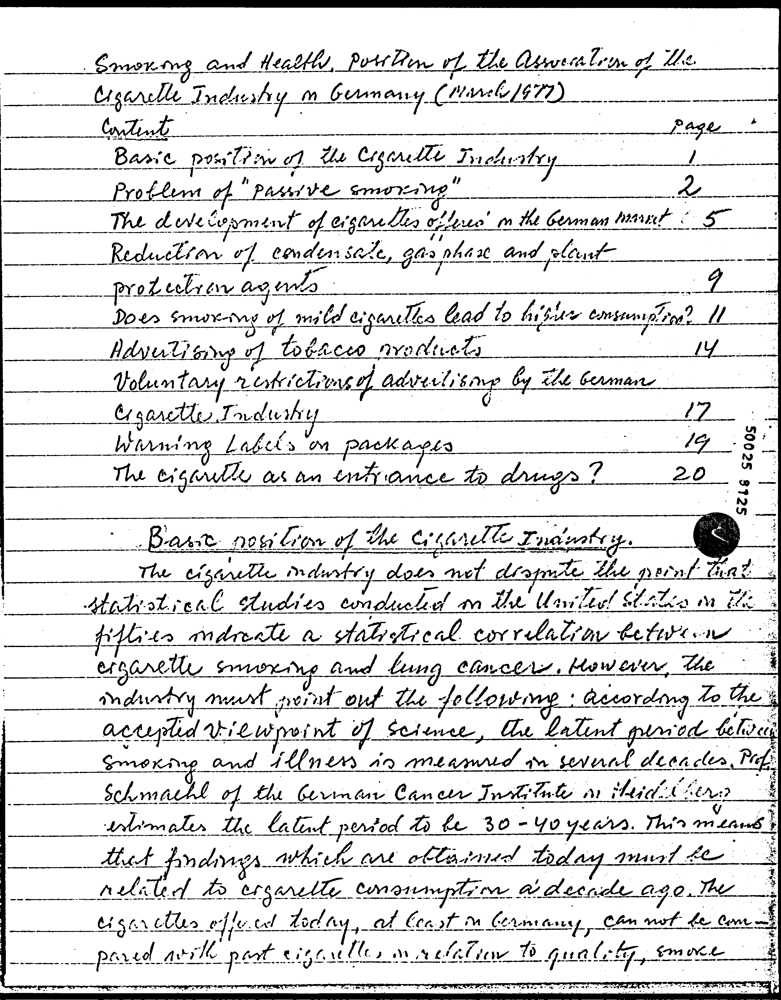 Smoking and Health, Position of the Association of the
Cigarette Industry in Germany (March 1977)
Content Page
Basic position of the Cigarette Industry 1
Problem of "passive smoking" 2
The development of cigarettes offered on the German market : 5
Reduction of condensate, gas phase and plant
protection agents 9
Does smoking of mild cigarettes lead to higher consumption? 11
Advertising of tobacco products 14
Voluntary restrictions of advertising by the German
Cigarette Industry 17
Warning Labels on packages 19
The cigarette as an entrance to drugs? 20
50025 8125
Basic position of the Cigarette Industry.
The cigarette industry does not dispute the point that
statistical studies conducted in the United States in the
fifties indicate a statistical correlation between
cigarette smoking and lung cancer. However, the
industry must point out the following: according to the
accepted viewpoint of science, the latent period between
smoking and illness is measured in several decades. Prof.
Schmaehl of the German Cancer Institute in Heidelberg
estimates the latent period to be 30-40 years. This means
that findings which are obtained today must be
related to cigarette consumption a decade ago. The
cigarettes offered today, at least in Germany, can not be com-
pared with past cigarettes in relation to quality, smoke